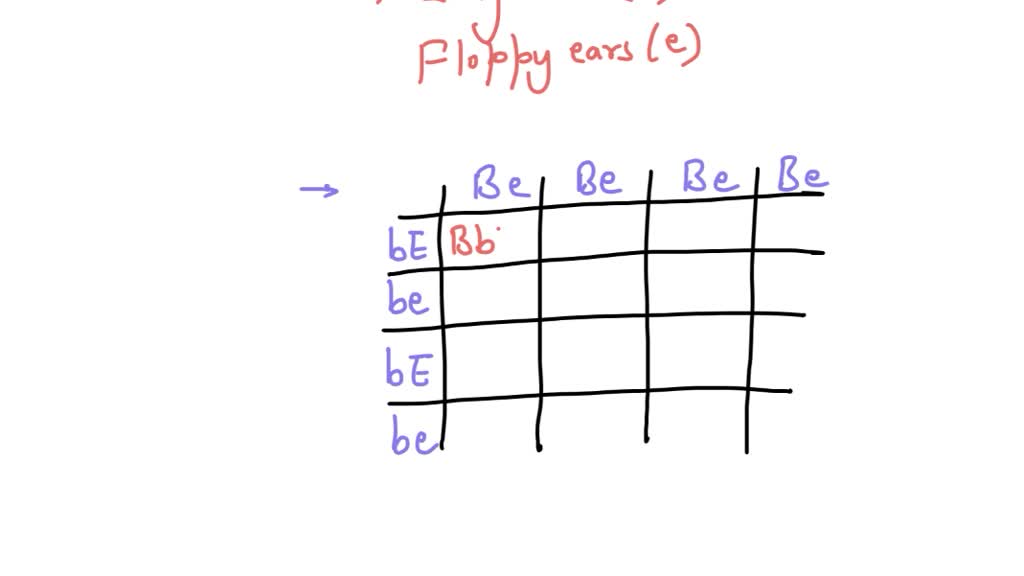 Floppy ears (e)
→ Be Be Be Be
bE Bb
be
bE
be